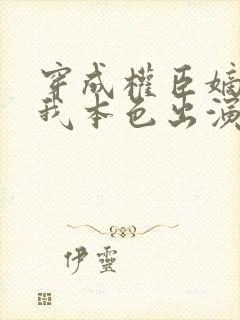 穿成權臣嫡
我本色出演
伊靈